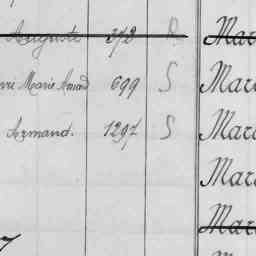 Auguste 372 D Mar
Marie Amand 699 S Mar
Armand. 1297 S Mar
Mar
Mar